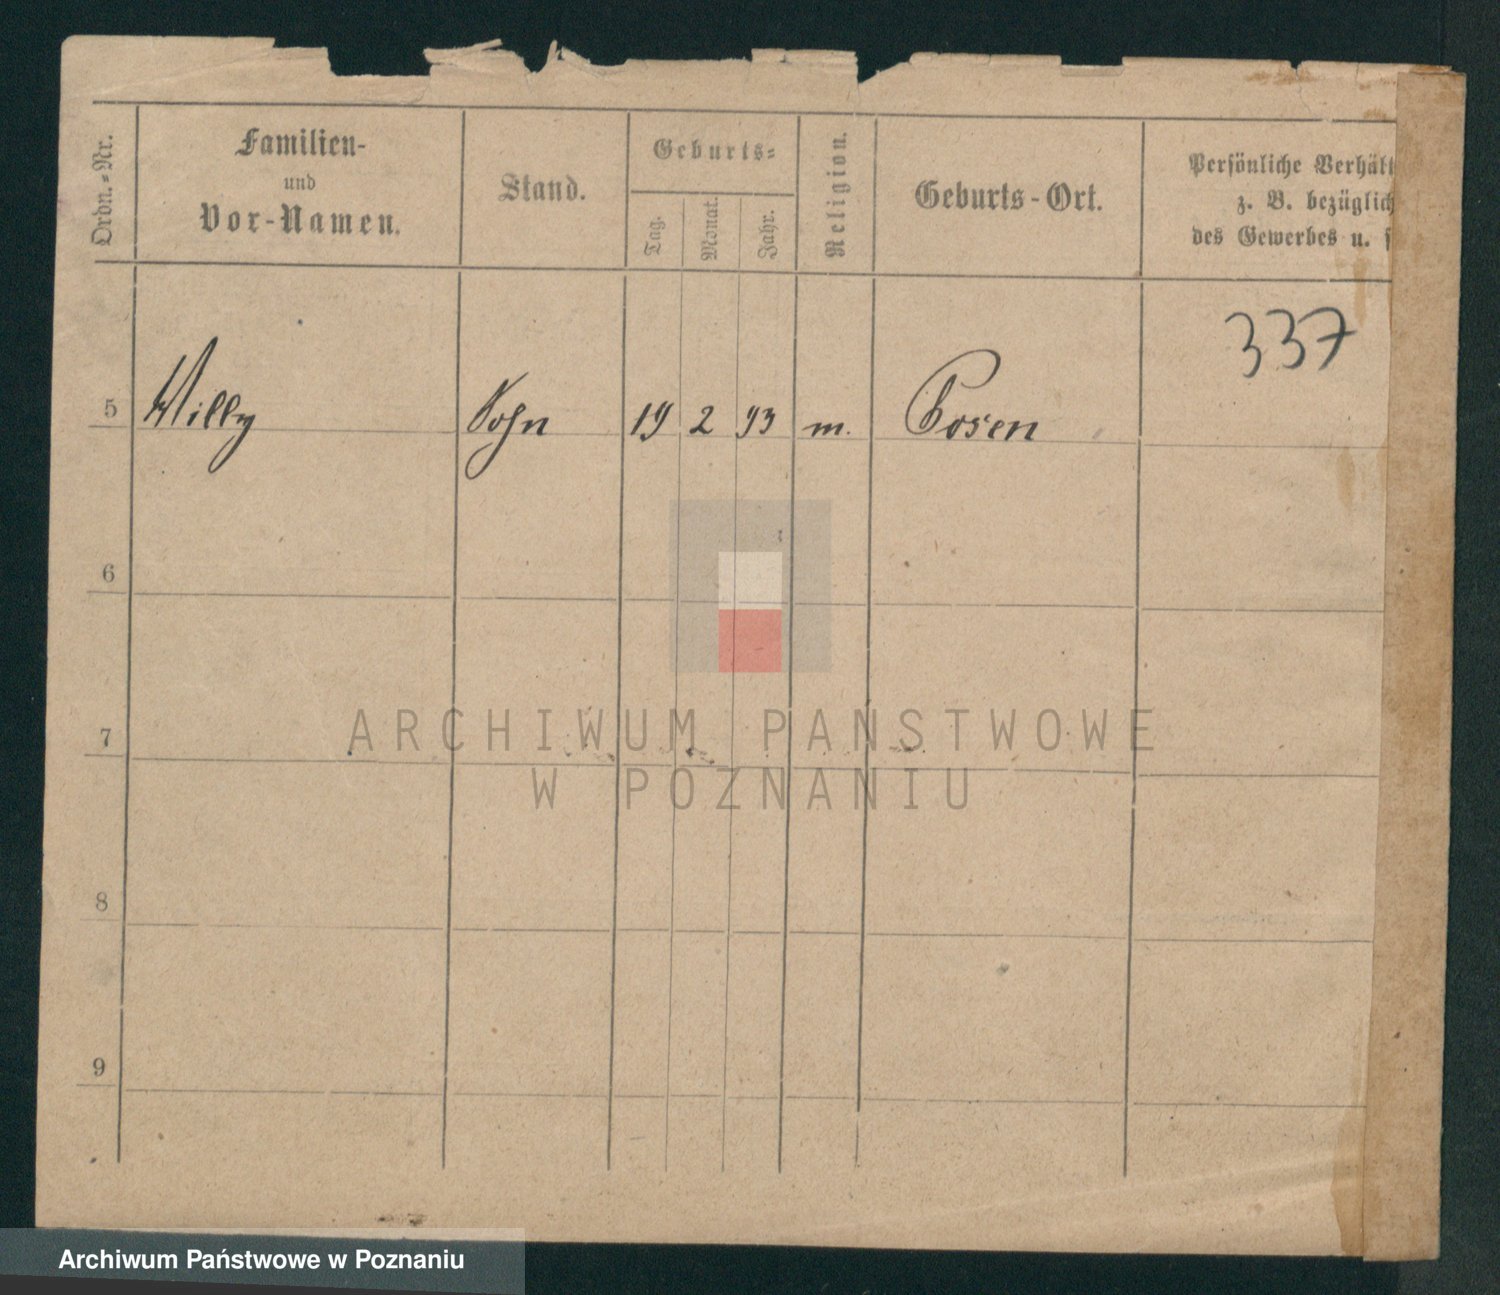 Ordn.-Nr.
Familien-
und
Vor-Namen.
Stand.
Geburts-
Tag.
Monat.
Jahr.
Religion.
Geburts-Ort.
Persönliche Verhält
z. B. bezüglich
des Gewerbes u. s
337
5 Willy Sohn 19 2 93 m. Posen
6
7
8
9
ARCHIWUM PAŃSTWOWE
W POZNANIU
Archiwum Państwowe w Poznaniu